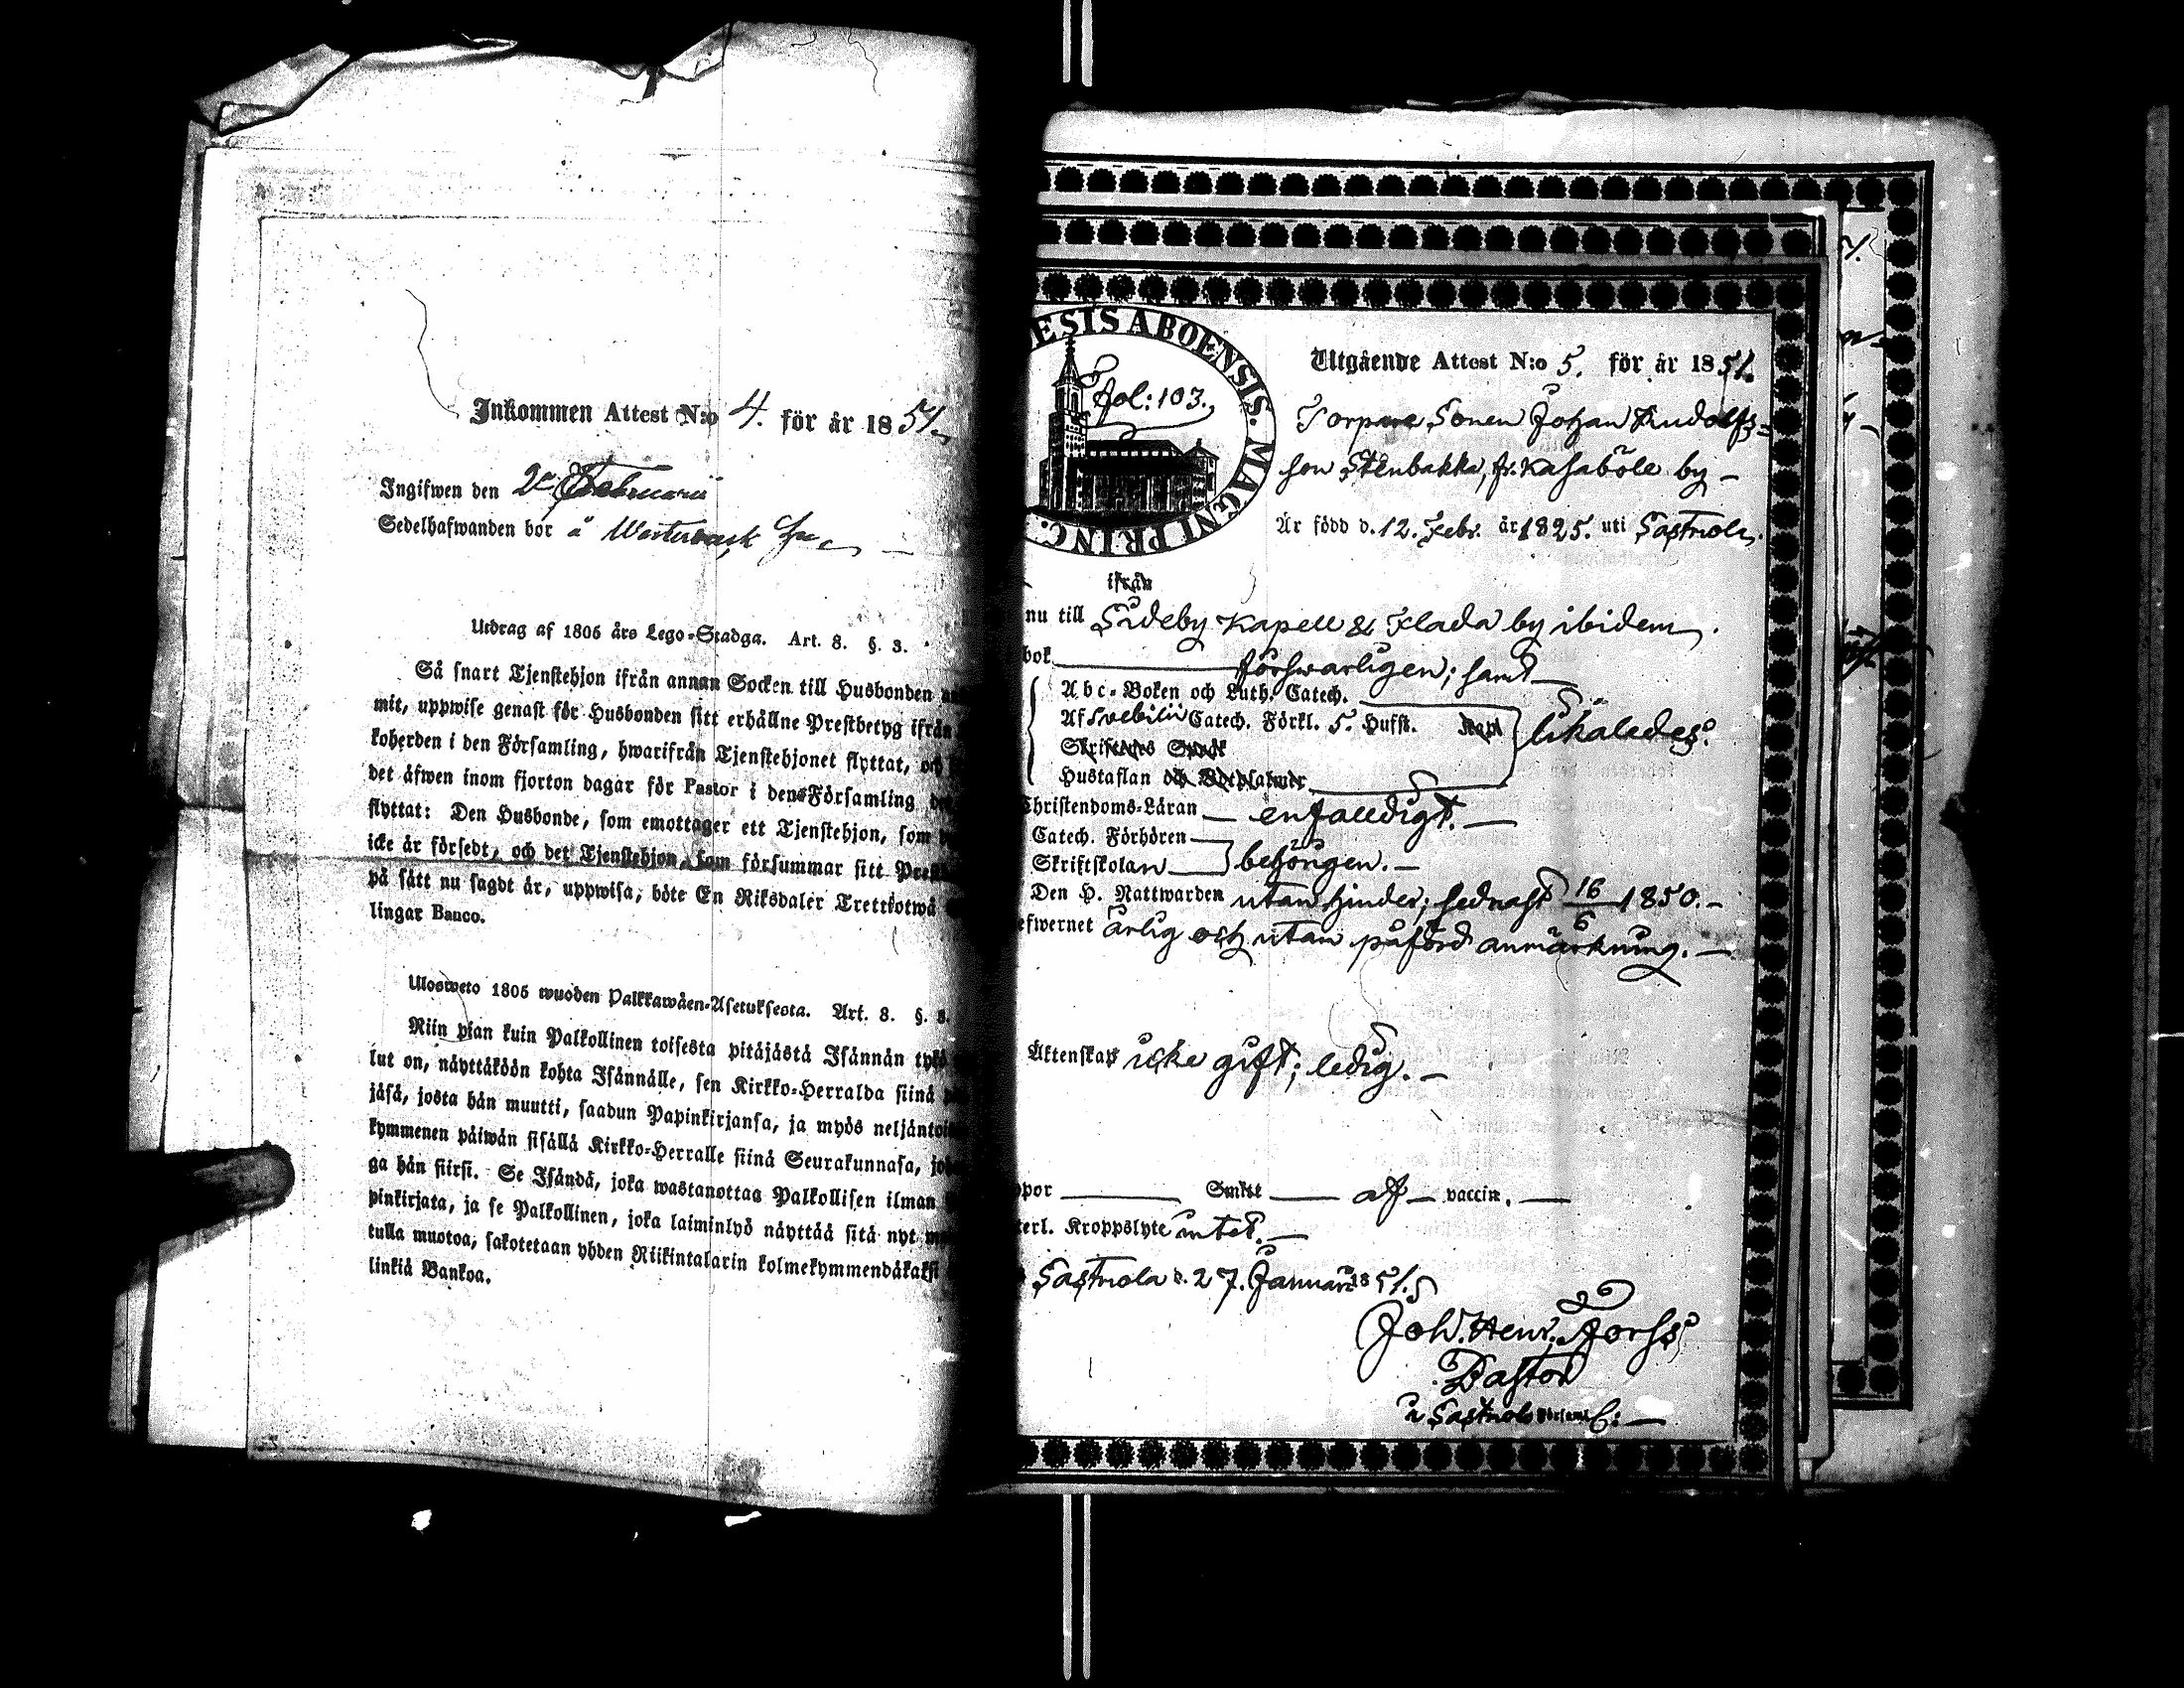 Inkommen Attest N:o 4. för år 1851.
Ingifwen den 2 Februarii
Sedelhafwanden bor å
Utdrag af 1805 års Lego-Stadga. Art. 8. §. 3.
Så snart Tjenstehjon ifrån annan Socken till Husbonden
mit, uppwise genast för Husbonden sitt erhållne Prestbetyg ifrån
koherden i den Församling, hwarifrån Tjenstehjonet flyttat, och
det äfwen inom fjorton dagar för Pastor i den Församling
flyttat: Den Husbonde, som emottager ett Tjenstehjon, som
icke är försedt, och det Tjenstehjon, som försummar sitt
på sätt nu sagdt är, uppwisa, böte En Riksdaler Trettiotwå
lingar Banco.
Ulosweto 1805 wuoden Palkkawäen-Asetuksesta. Art. 8. §. 3.
Niin pian kuin Palkollinen toisesta pitäjästä Isännän tykö
lut on, näyttäköön kohta Isännälle, sen Kirkko-Herralda siinä
jäsä, josta hän muutti, saadun Papinkirjansa, ja myös neljäntoista
kymmenen päiwän sisällä Kirkko-Herralle siinä Seurakunnasa,
ga hän siirsi. Se Isändä, joka wastanottaa Palkollisen ilman
pinkirjata, ja se Palkollinen, joka laiminlyö näyttää sitä nyt
tulla muotoa, sakotetaan yhden Riikintalarin kolmekymmendäkaksi
linkiä Bankoa.
ESIS ABOENSIS. MAGNI PRINC.
fol: 103.
Utgående Attest N:o 5. för år 1851.
Torpare Sonen Johan Rudolfs=
son Stenbakka, fr. Kasaböle by –
Är född d. 12. Febr. år 1825. uti Sastmola.
ifrån
nu till Sideby Kapell & Flada by ibidem.
bok försvarligen; samt
Abc-Boken och Luth. Catech.
Af Svebilii Catech. Förkl. 5. Hufst. likaledes.
Hustaflan
Christendoms-Läran enfaldigt.
Catech. Förhören
Skriftskolan behörigen.
Den H. Nattwarden utan hinder; sednast 16/6 1850.
efwernet ärlig och utan påförd anmärkning.
Äktenskap icke gift; ledig.
ppor Smitt af vaccin.
terl. Kroppslyte intet.
Sastmola d. 27. Januarii 1851.
Joh. Henr. Forss
Pastor
i Sastmola Församl.